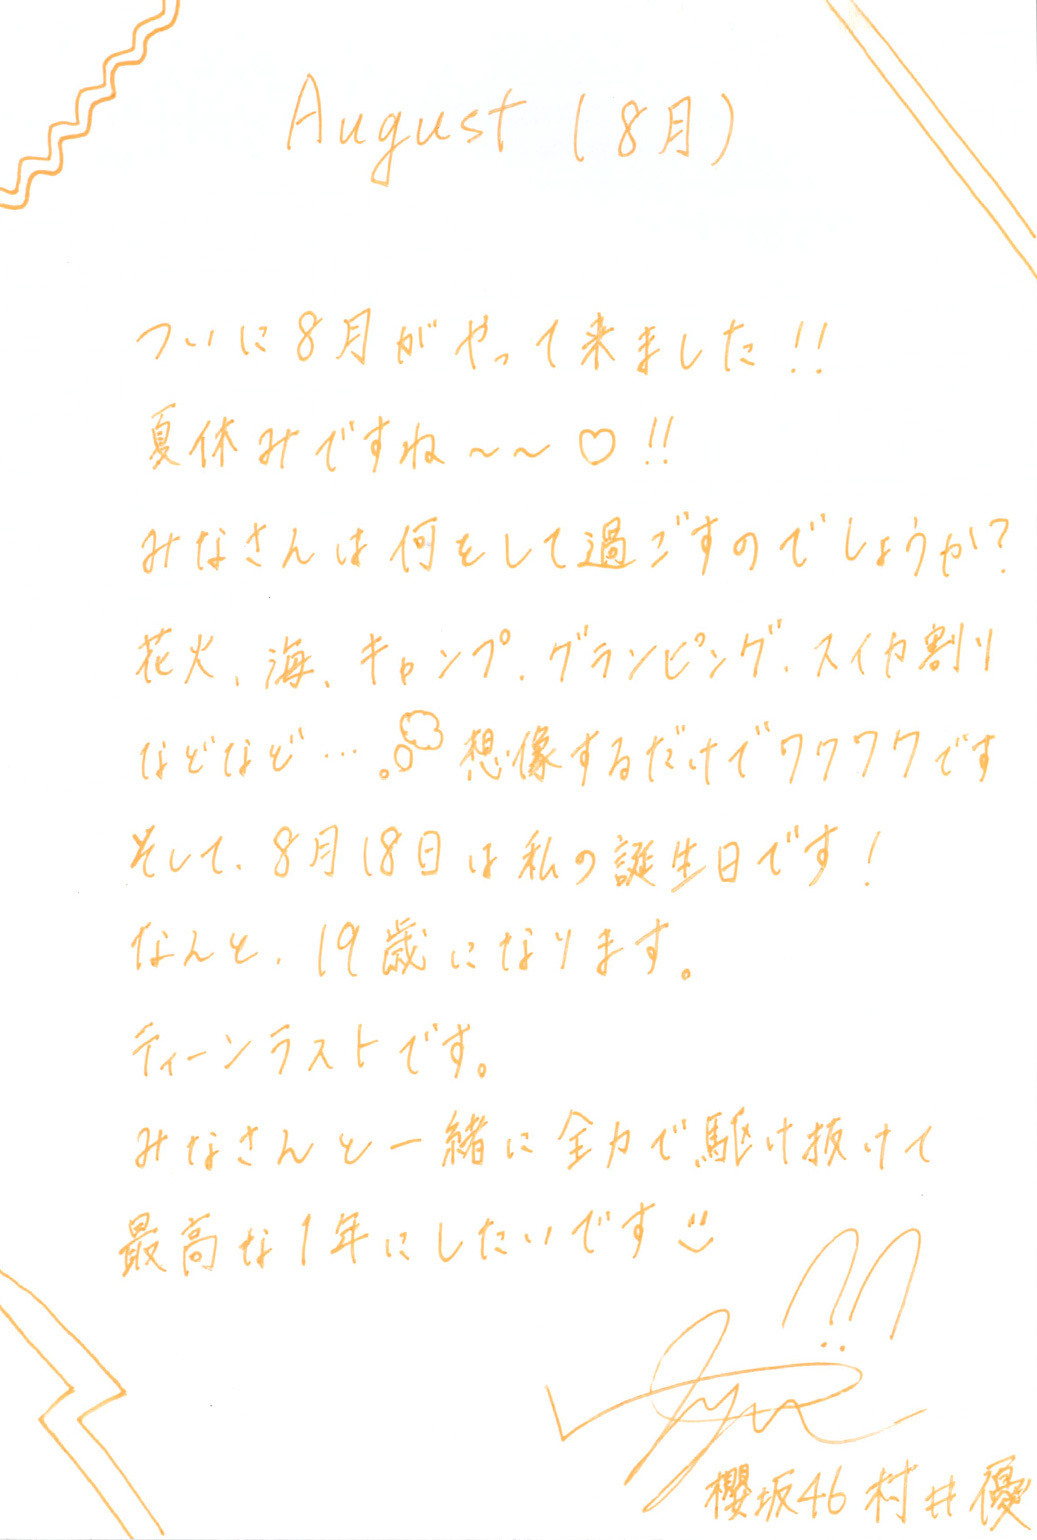 August (8月)
ついに8月がやって来ました!!
夏休みですね〜〜♡!!
みなさんは何をして過ごすのでしょうか?
花火、海、キャンプ、グランピング、スイカ割り
などなど…想像するだけでワクワクです
そして、8月18日は私の誕生日です!
なんと、19歳になります。
ティーンラストです。
みなさんと一緒に全力で駆け抜けて
最高な1年にしたいです
櫻坂46 村井優